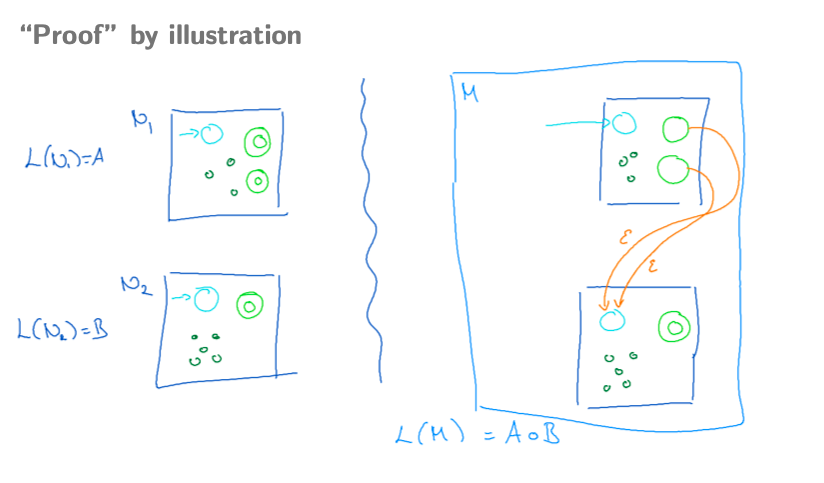 “Proof” by illustration
N₁
L(N₁)=A
N₂
L(N₂)=B
M
ε
ε
L(M) = A∘B